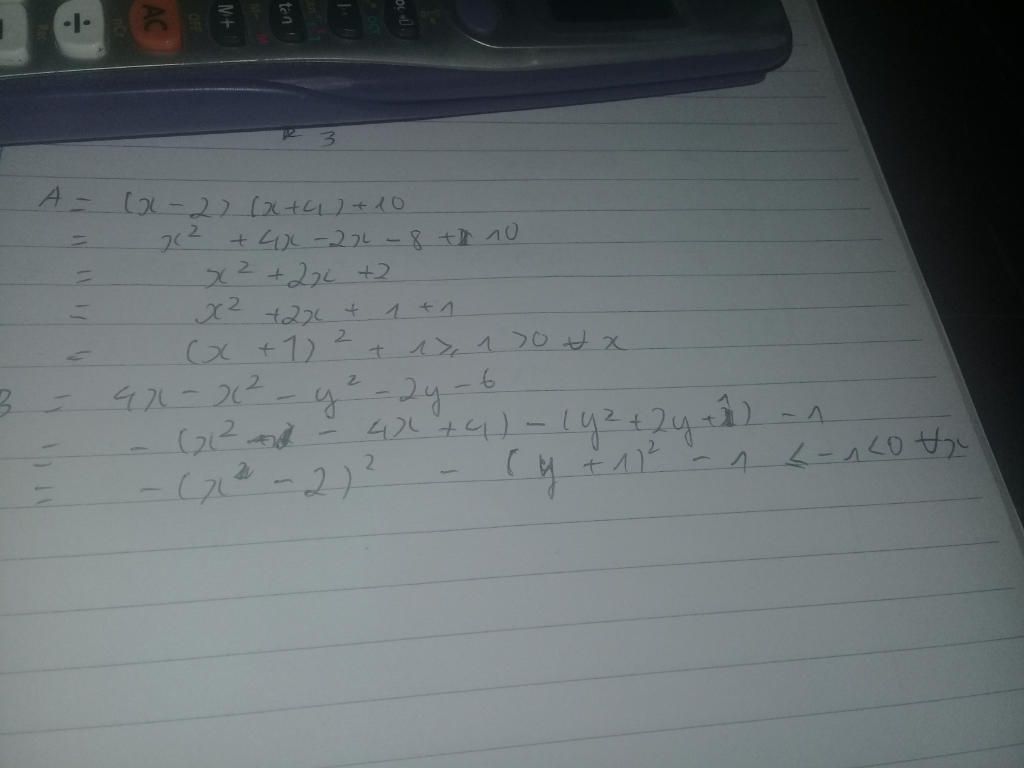 ÷ AC M+ tan
3
A = (x - 2) (x + 4) + 10
= x² + 4x - 2x - 8 + 10
= x² + 2x + 2
= x² + 2x + 1 + 1
= (x + 1)² + 1 ≥ 1 > 0 ∀ x
B = 4x - x² - y² - 2y - 6
= - (x² - 4x + 4) - (y² + 2y + 1) - 1
= - (x - 2)² - (y + 1)² - 1 ≤ - 1 < 0 ∀ x